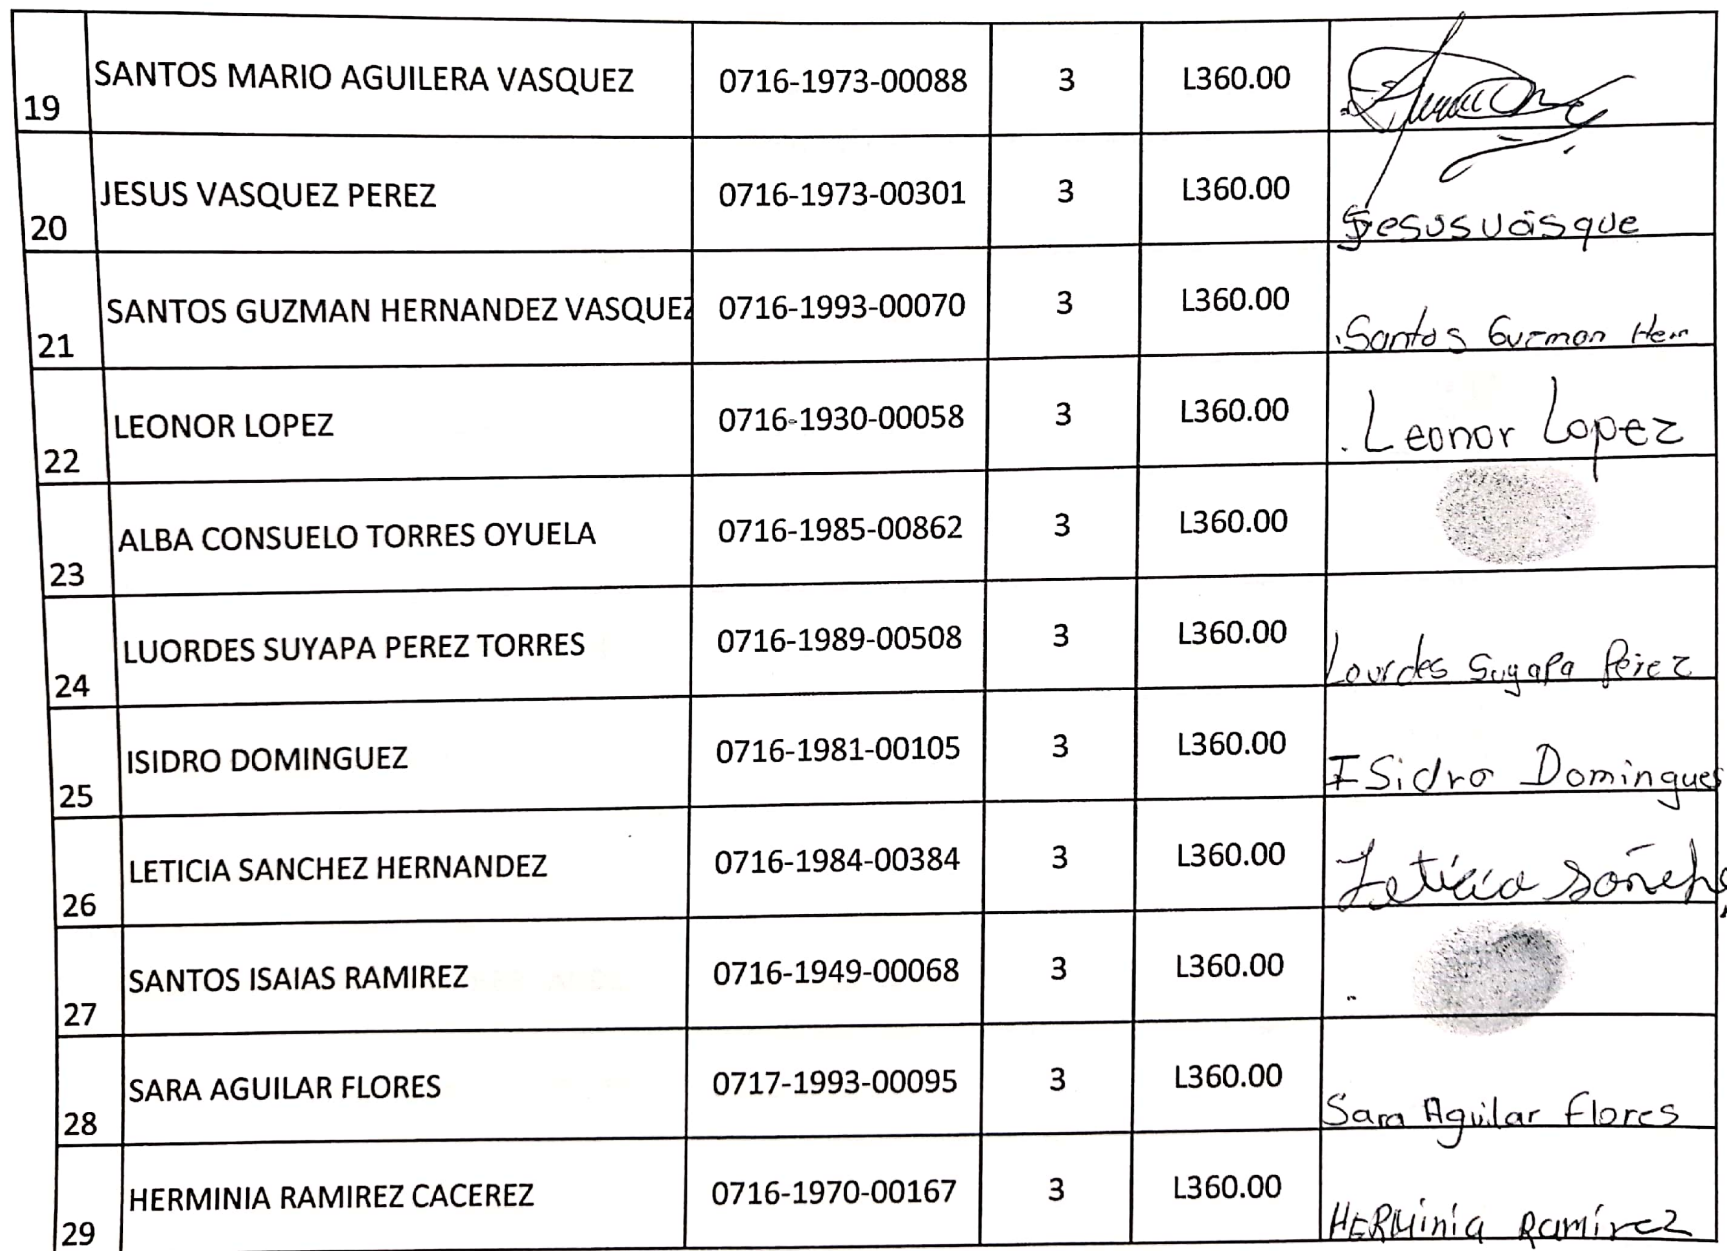 19 SANTOS MARIO AGUILERA VASQUEZ 0716-1973-00088 3 L360.00
20 JESUS VASQUEZ PEREZ 0716-1973-00301 3 L360.00 Jesus vásque
21 SANTOS GUZMAN HERNANDEZ VASQUEZ 0716-1993-00070 3 L360.00 Santos Guzman Hern
22 LEONOR LOPEZ 0716-1930-00058 3 L360.00 Leonor Lopez
23 ALBA CONSUELO TORRES OYUELA 0716-1985-00862 3 L360.00
24 LUORDES SUYAPA PEREZ TORRES 0716-1989-00508 3 L360.00 Lourdes Suyapa Pérez
25 ISIDRO DOMINGUEZ 0716-1981-00105 3 L360.00 ISidro Domingues
26 LETICIA SANCHEZ HERNANDEZ 0716-1984-00384 3 L360.00 Leticia
27 SANTOS ISAIAS RAMIREZ 0716-1949-00068 3 L360.00
28 SARA AGUILAR FLORES 0717-1993-00095 3 L360.00 Sara Aguilar Flores
29 HERMINIA RAMIREZ CACEREZ 0716-1970-00167 3 L360.00 HERMinia Ramírez